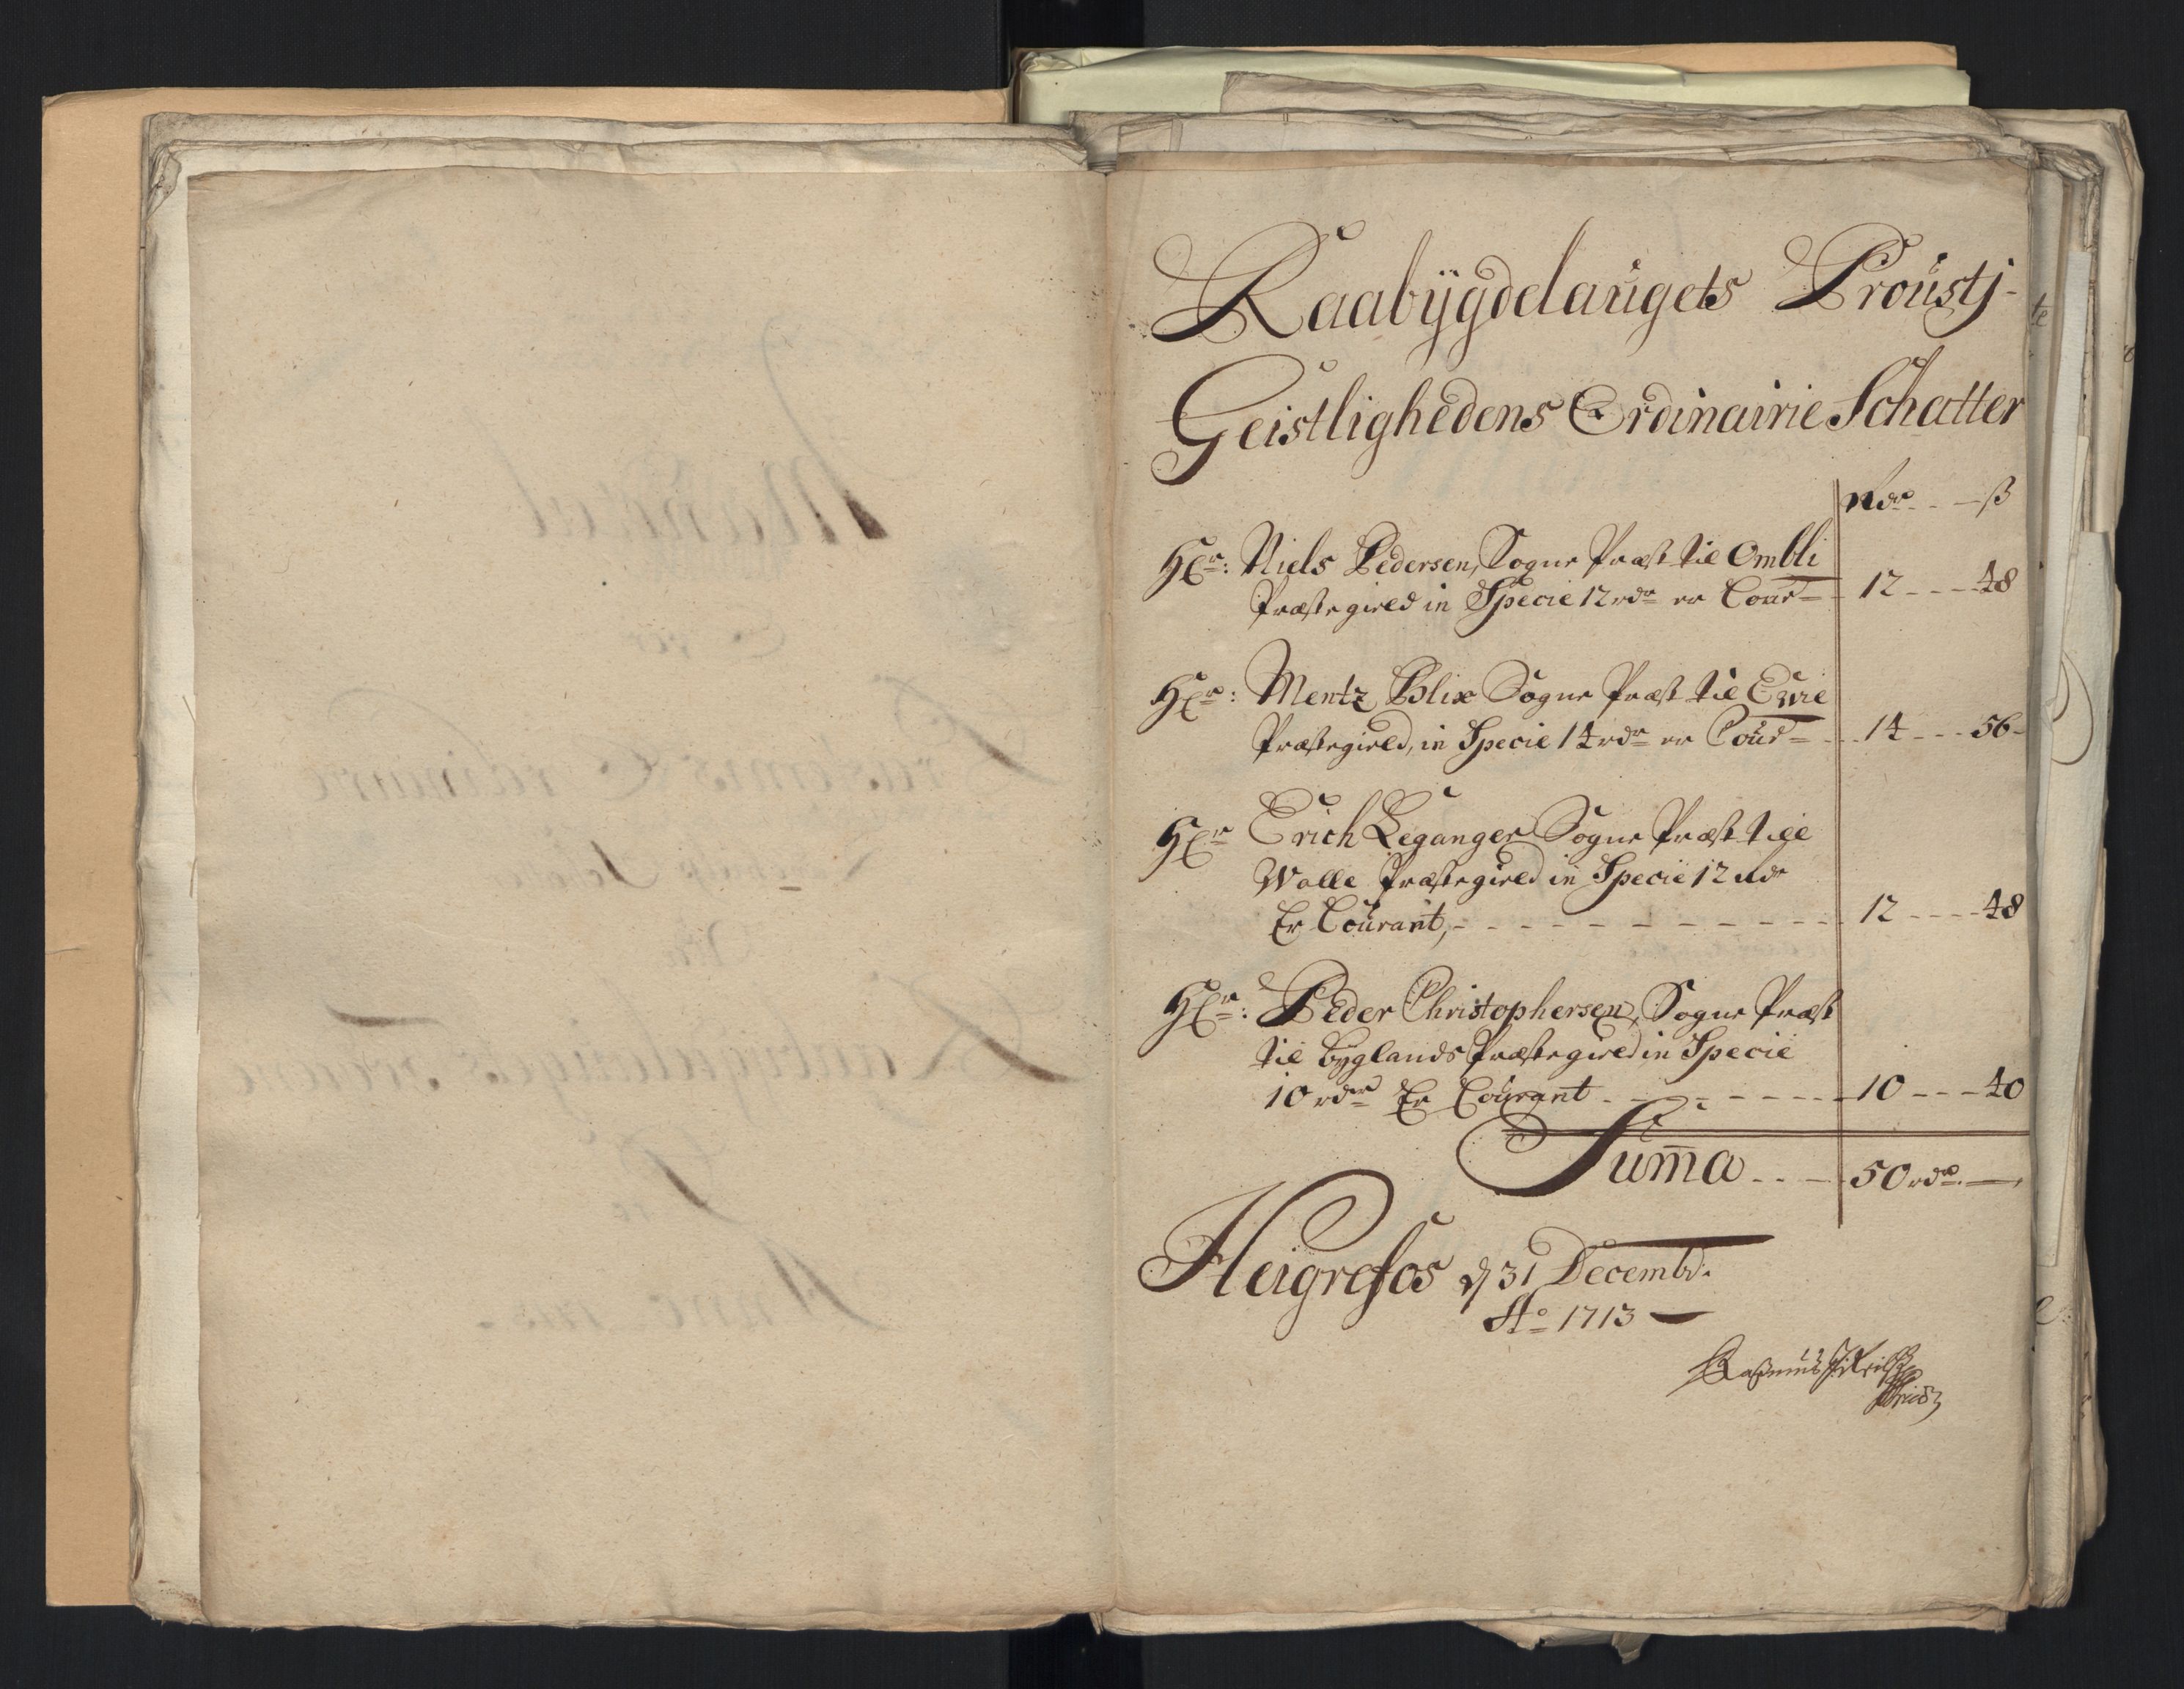 Raabÿgdelaugets Proustj-
Geistlighedens Ordinairie Schatter
Rdr -- ß
Hr: Niels Pedersen, Sogne Præst til Ombli
Præstegield in Specie 12 rdr er Cour= 12 ---- 48
Hr: Mentz Blix Sogne Præst til Ewie
Præstegield, in Specie 14 rdr er Cour= 14 --- 56-
Hr Erich Leganger Sogne Præst till
Walle Præstegield in Specie 12 rdr
Er Courant, - - - - - - - - - - 12 ---- 48
Hr: Peder Christophersen, Sogne Præst
til Byglands Præstegield in Specie
10 rdr Er Courant - - - - - - - 10 --- 40
Suma̅ . . - 50 rdr. —
Heigrefos d 31 Decembr.
Ao 1713 —
Rasmus